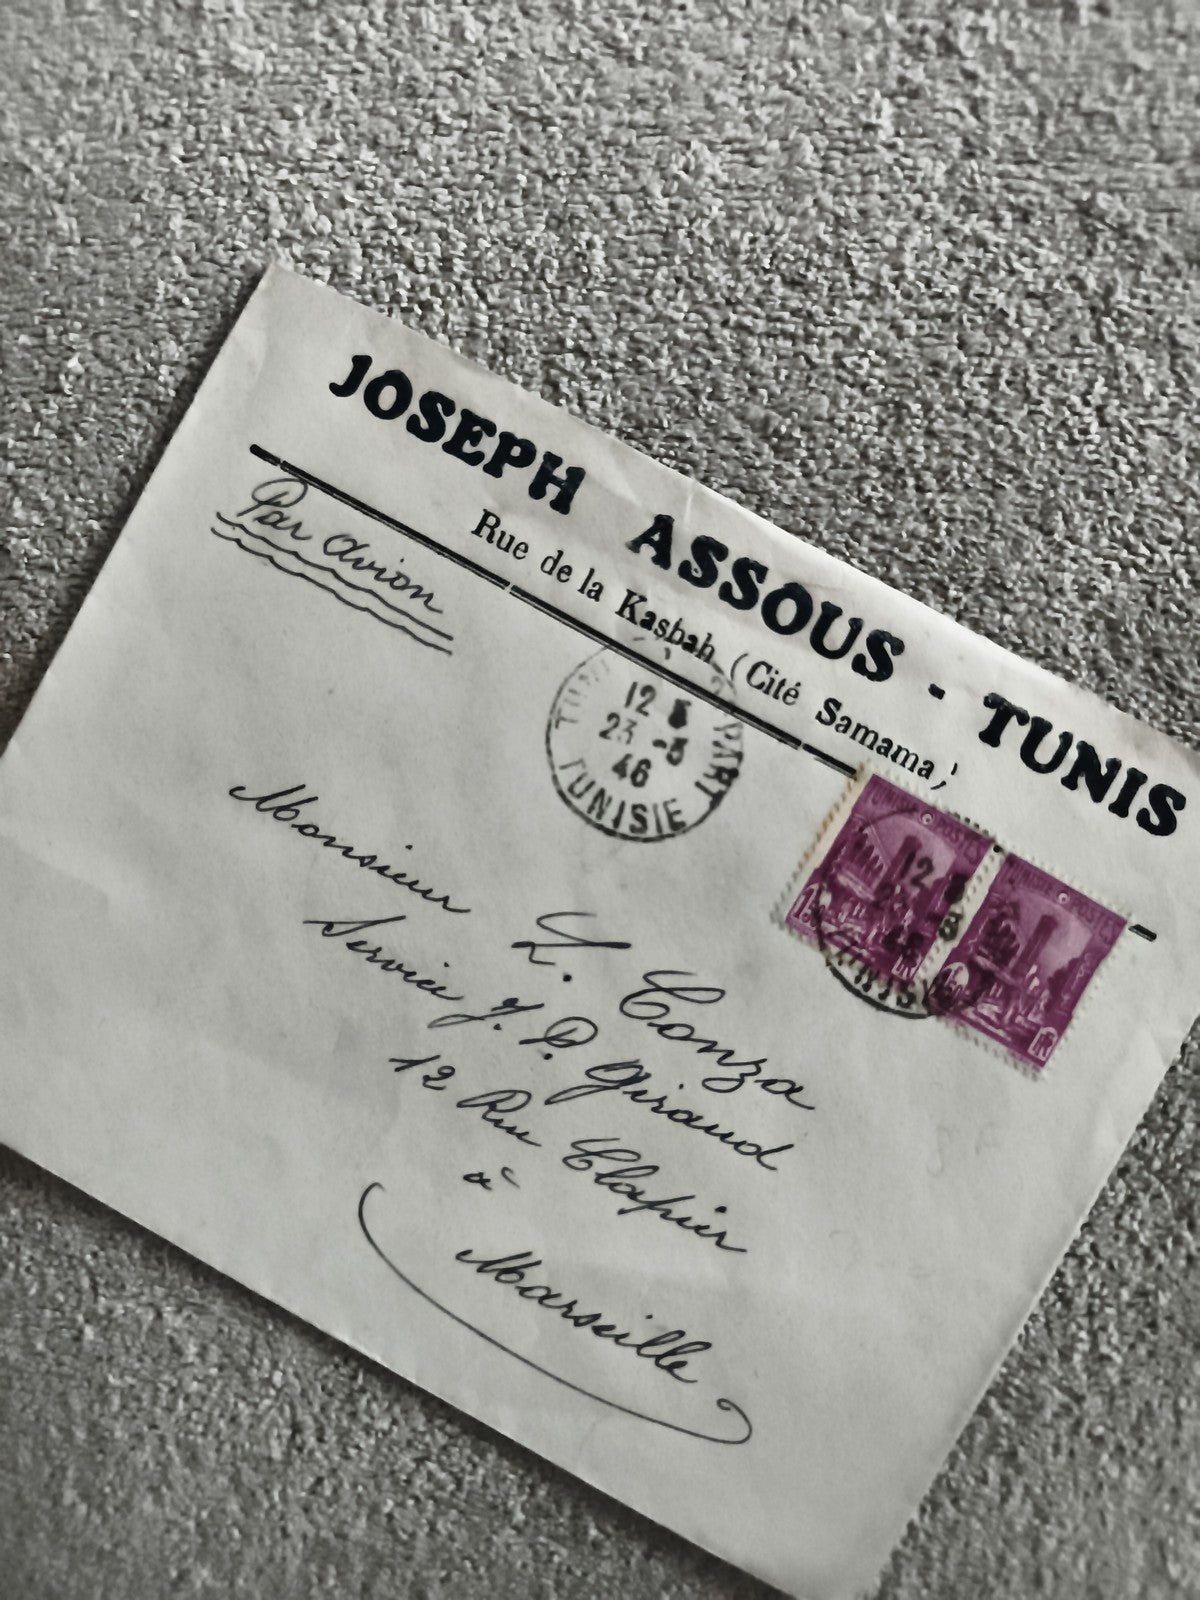 JOSEPH ASSOUS - TUNIS
Rue de la Kasbah (Cité Samama)
Par avion
12
23 -3
46
TUNISIE
Monsieur Z. Conza
Service J. P. Giraud
12 Rue Clapier
à
Marseille
POSTES
POSTES
12
1,50
1,50